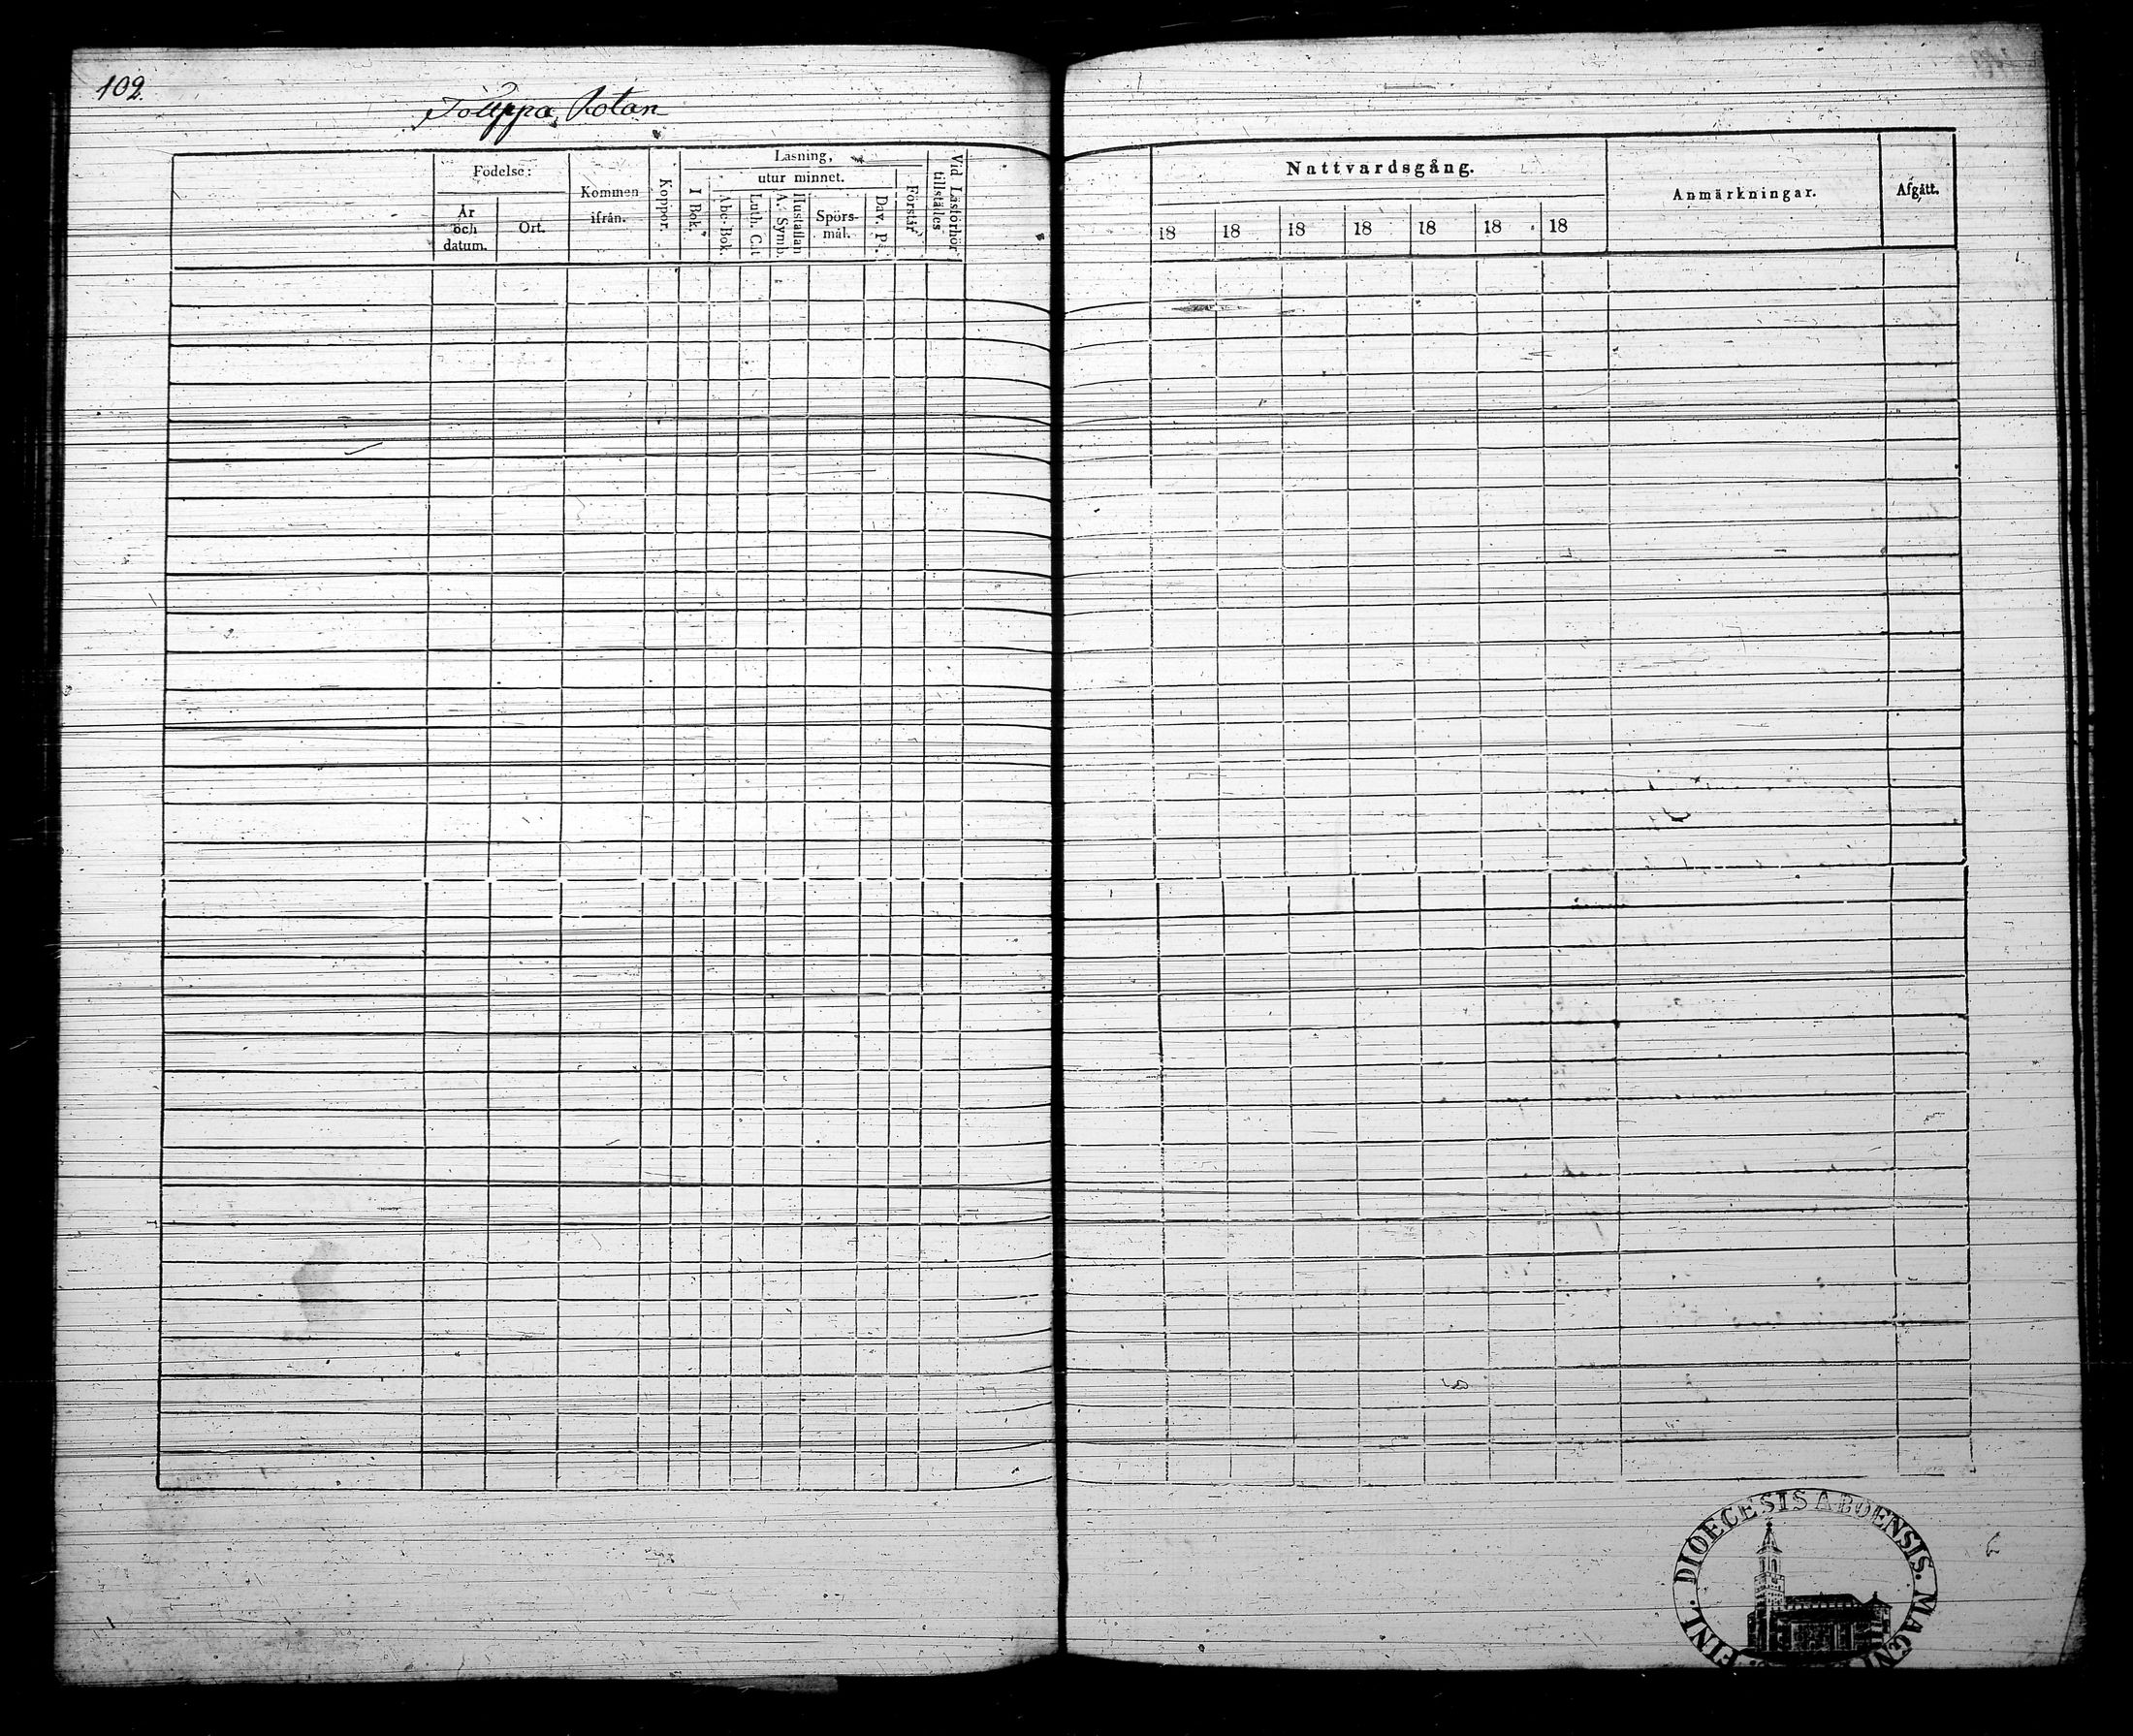 102.
Rotan
Födelse:
År och datum.
Ort.
Kommen ifrån.
Koppor.
Läsning,
utur minnet.
I Bok.
Abc-Bok.
Luth. Cat
A. Symb.
Hustaflan
Spörs-mål.
Dav. Ps.
Förstår
Vid Läsförhör tillstädes
Nattvardsgång.
18 18 18 18 18 18 18
Anmärkningar.
Afgått.
DIOECESIS ABOENSIS. MAGNI
FINL.